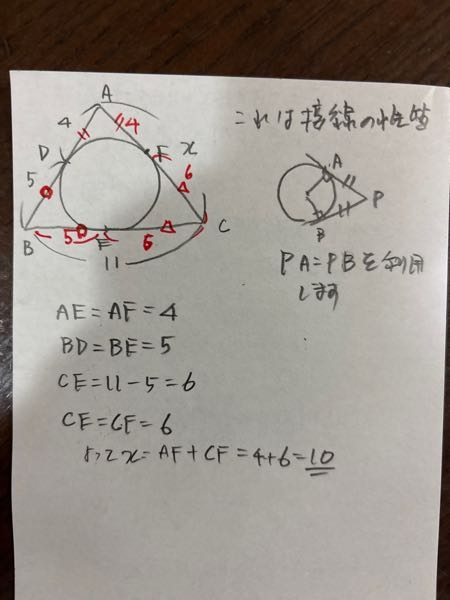 A
4
4
D
F
x
5
6
B
5
E
6
C
11
これは接線の性質
A
P
B
PA=PBを利用
します
AE=AF=4
BD=BE=5
CE=11-5=6
CE=CF=6
よってx=AF+CF=4+6=10